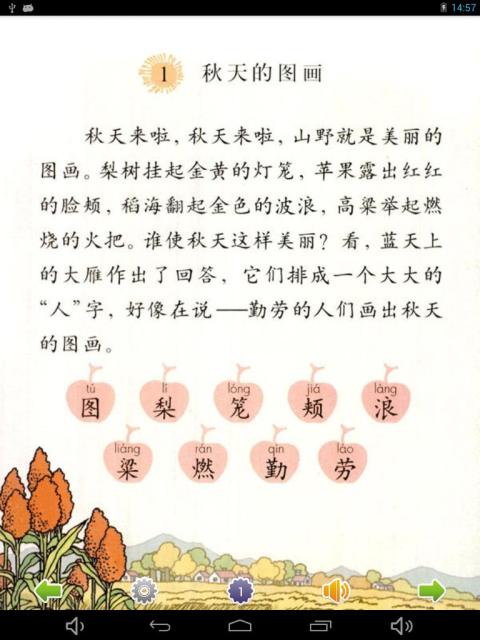 14:57
1 秋天的图画
秋天来啦，秋天来啦，山野就是美丽的
图画。梨树挂起金黄的灯笼，苹果露出红红
的脸颊，稻海翻起金色的波浪，高粱举起燃
烧的火把。谁使秋天这样美丽？看，蓝天上
的大雁作出了回答，它们排成一个大大的
“人”字，好像在说——勤劳的人们画出秋天
的图画。
tú lí lóng jiá làng
图 梨 笼 颊 浪
liáng rán qín láo
梁 燃 勤 劳
1